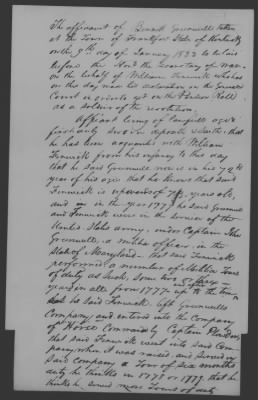 The affidavit of Bennett Greenwell taken
at the Town of Frankfort State of Kentucky
on the 9th day of January 1833 to be laid
before the Hon'd the Secretary of War
on the behalf of William Fenwick who has
on this day now his declaration in the General
Court in order to get on the Pension Roll
as a soldier of the revolution.
Affiant being of lawfull age &
first duly sworn deposeth & saith that
he has been acquainted with William
Fenwick from his infancy to this day
that he said Greenwell now is in his 79th
year of his age that he knows that said
Fenwick is upwards of 70 years old,
and in the year 1777 he said Greenwell
and Fenwick were in the service of the
United States army, under Captain John
Greenwell, a militia officer, in the
State of Maryland that said Fenwick
performed a number of Militia Tours
of duty as such,
years in all from 1777 up to the time
that he said Fenwick left Greenwells
Company and entered into the Company
of Horse Commanded by Captain
that said Fenwick went into said Com
pany when it was raised, and served in
said company a Tour of Six months
duty he thinks in 1778 or 1779, that he
thinks he served more Tours of duty